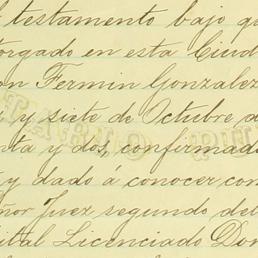 l testamento bajo qu
torgado en esta Ciud
on Fermin Gonzalez
y siete de Octubre d
nta y dos, confirmad
y dado á conocer con
ñor Juez segundo del
ital Licenciado Don